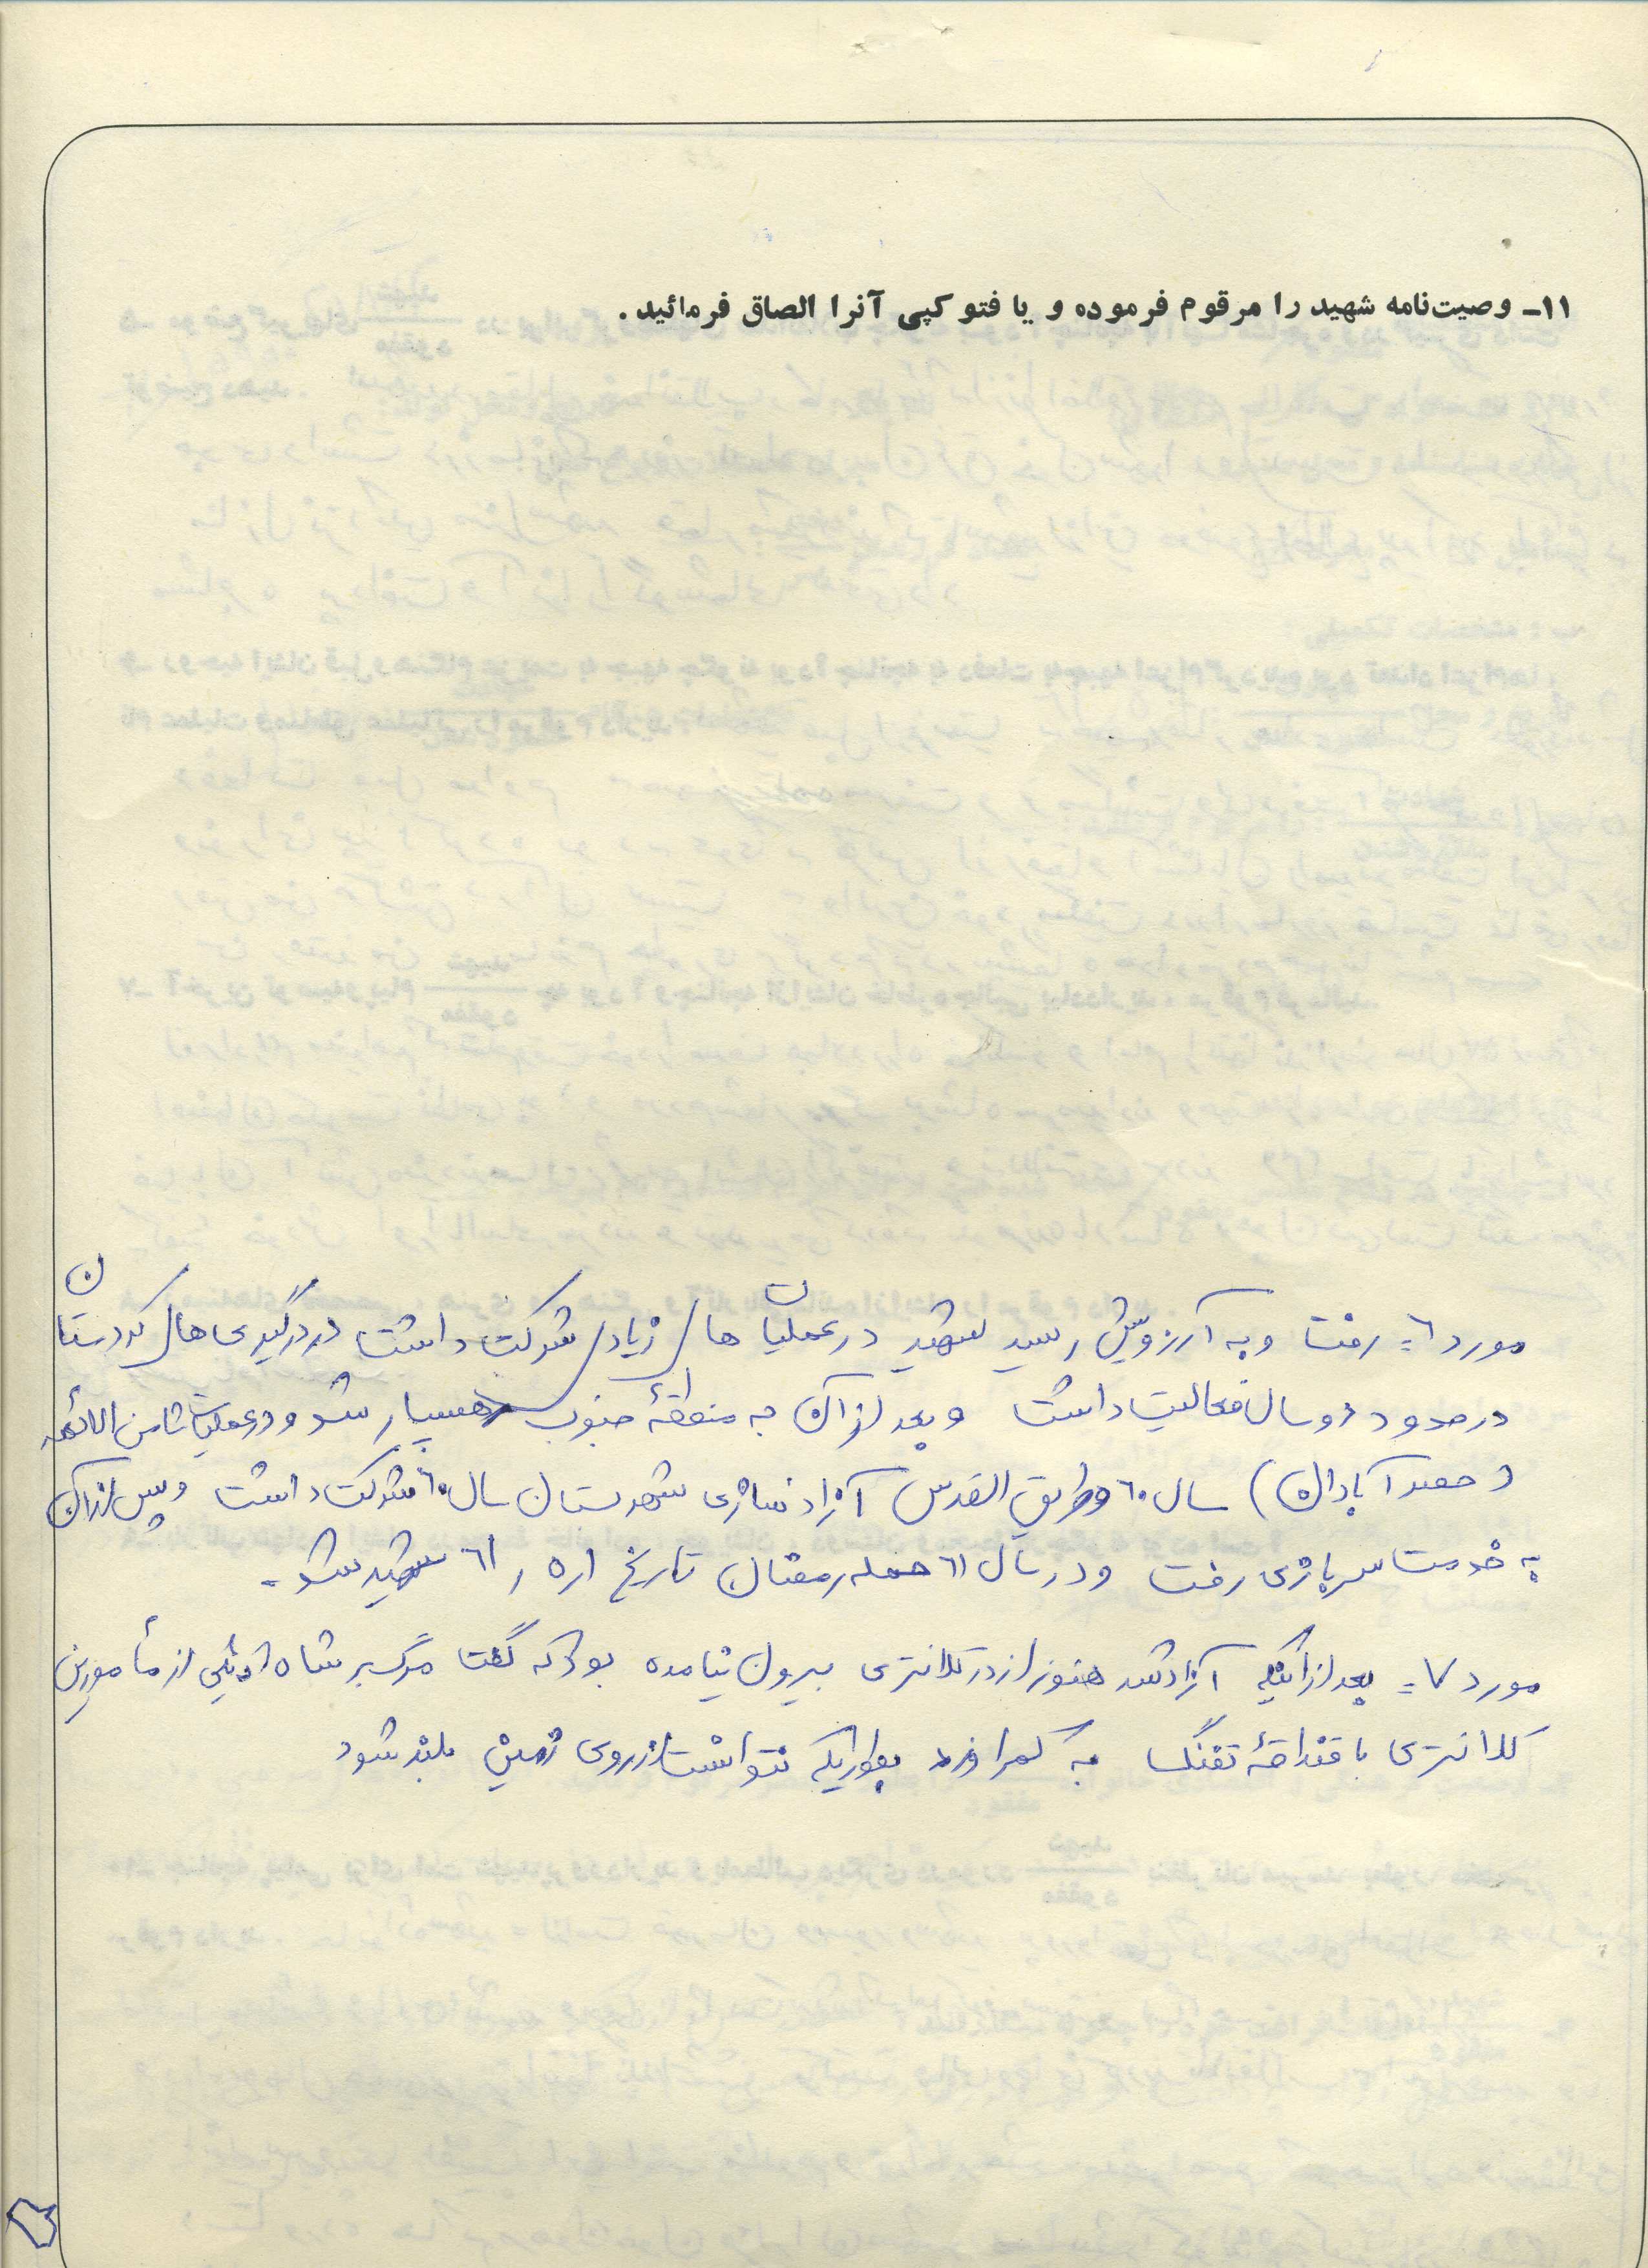 ۱۱- وصیت‌نامه شهید را مرقوم فرموده و یا فتوکپی آنرا الصاق فرمائید .
مورد ٦ = رفت و به آرزویش رسید شهید در عملیات ها زیاد شرکت داشت در درگیری ها کردستان
در حدود دو سال فعالیت داشت و بعد از آن به منطقهٔ جنوب رهسپار شد و در عملیات ثامن الائمه
( حصر آبادان ) سال ٦۰ و طریق القدس آزادسازی شهر بستان سال ٦۰ شرکت داشت و پس از آن
به خدمت سربازی رفت و در سال ٦۱ حمله رمضان تاریخ ٦۱ شهید شد .
مورد ۷ = بعد از اینکه آزاد شد هنوز از در کلانتری بیرون نیامده بود که گفت مرگ بر شاه از مأمورین
کلانتری با قنداقهٔ تفنگ به کمر او زد بطوریکه نتوانست از روی زمین بلند شود